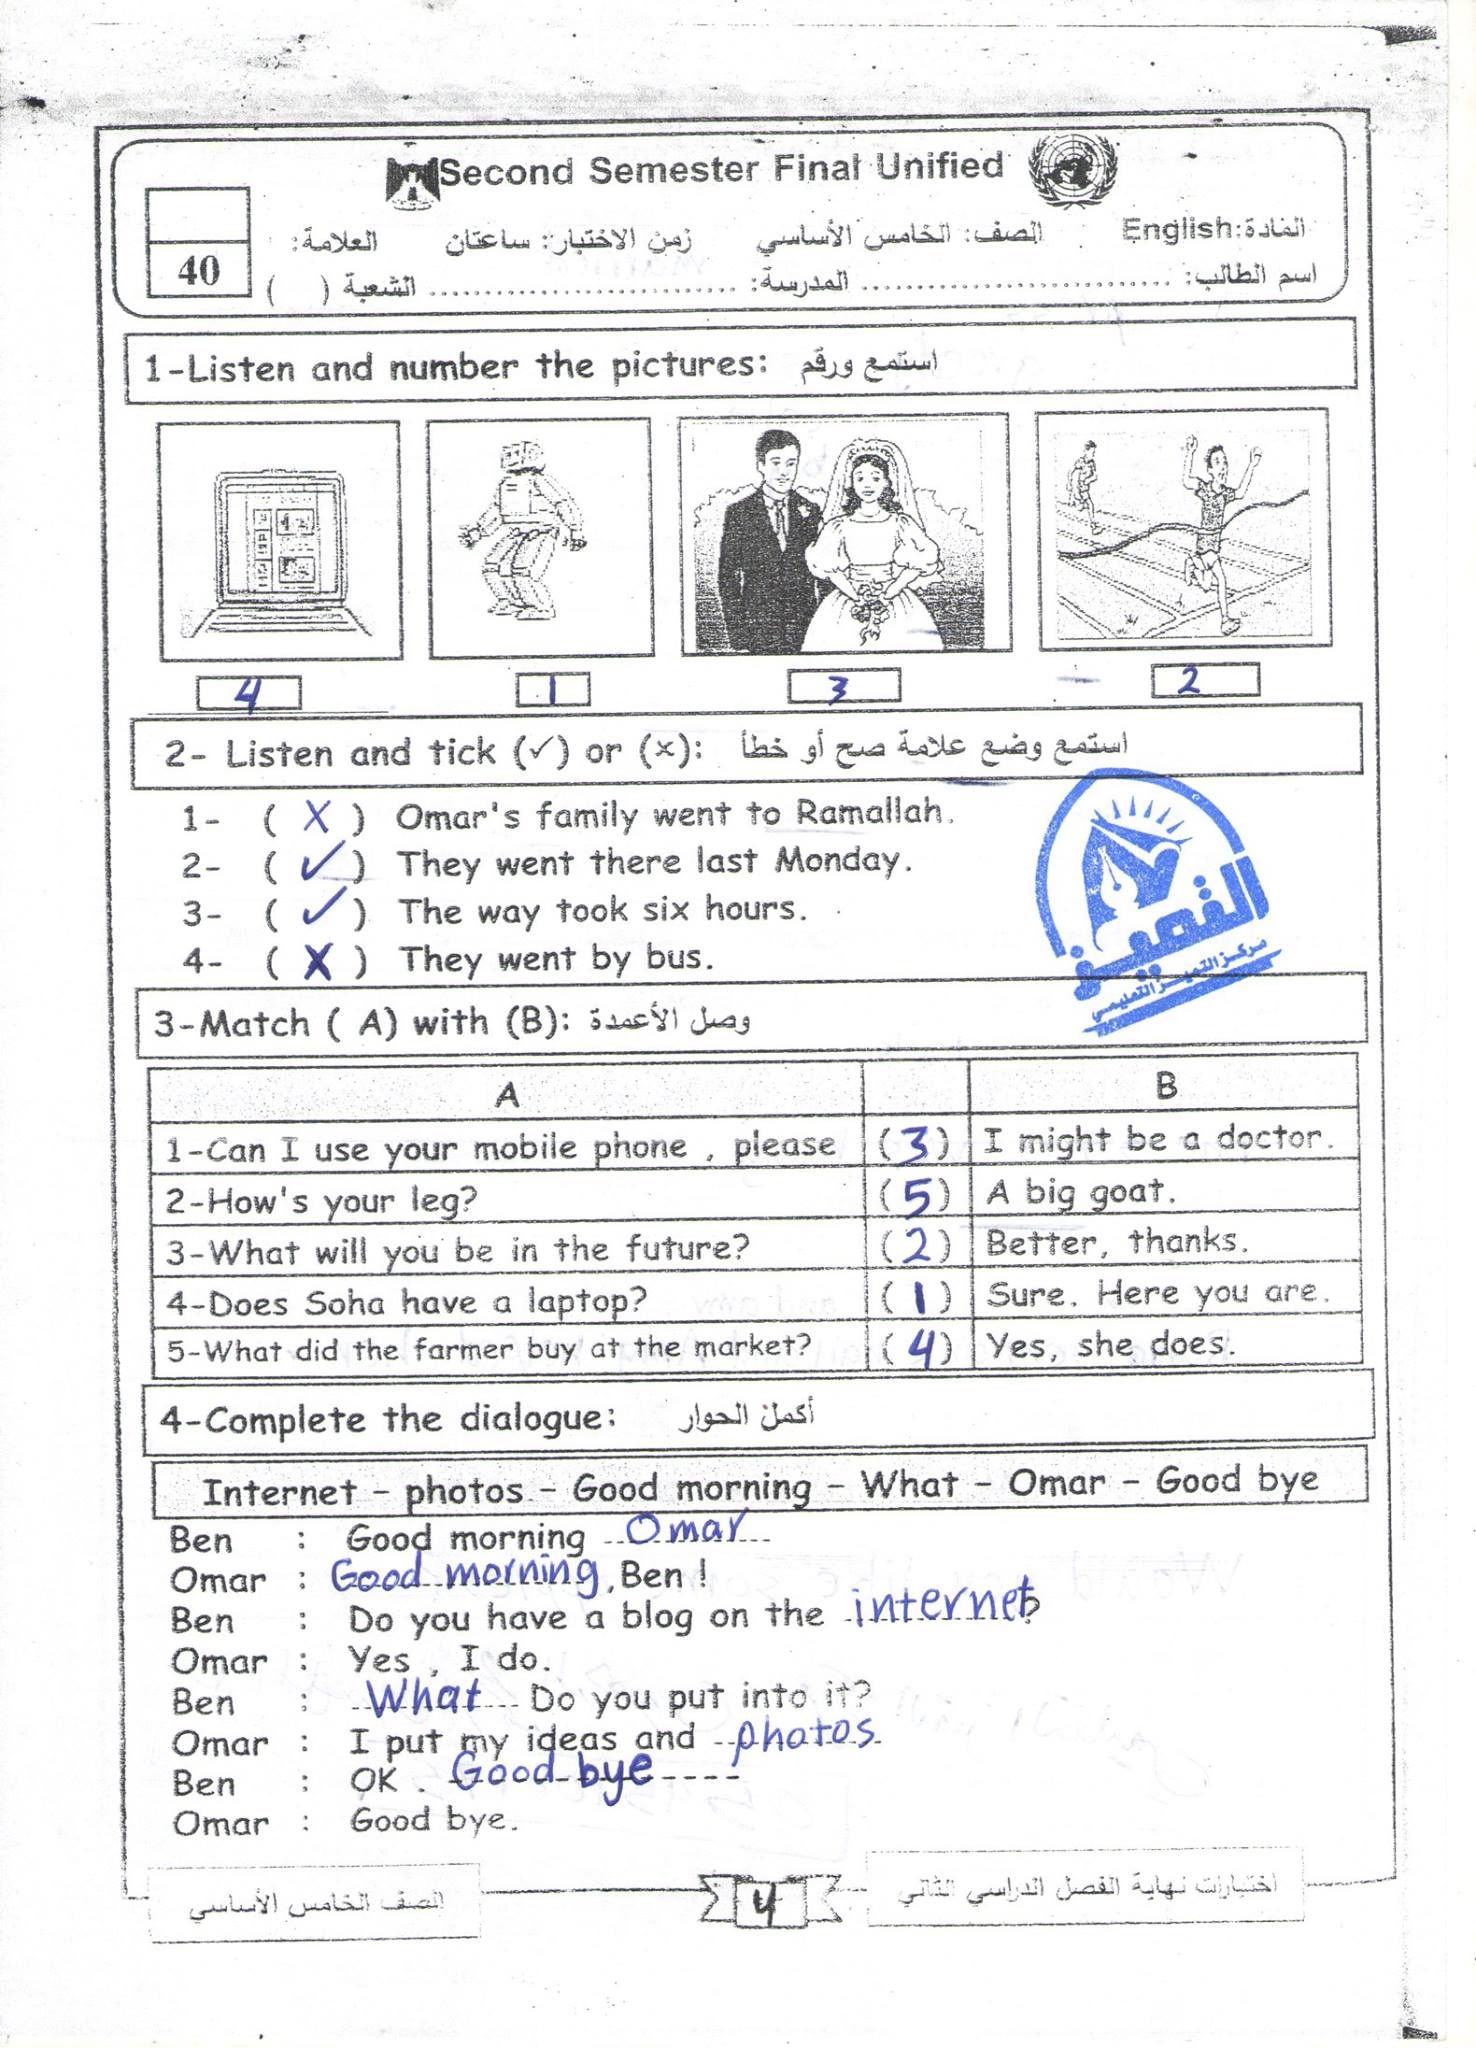 Second Semester Final Unified
المادة: English الصف: الخامس الأساسي زمن الاختبار: ساعتان العلامة:
40
اسم الطالب: ............................ المدرسة: ............................ الشعبة ( )
1-Listen and number the pictures: استمع ورقم
4 1 3 2
2- Listen and tick (✓) or (×): استمع وضع علامة صح أو خطأ
1- ( X ) Omar's family went to Ramallah.
2- ( ✓ ) They went there last Monday.
3- ( ✓ ) The way took six hours.
4- ( X ) They went by bus.
التميز
مركز التميز التعليمي
3-Match ( A) with (B): وصل الأعمدة
A B
1-Can I use your mobile phone , please (3) I might be a doctor.
2-How's your leg? (5) A big goat.
3-What will you be in the future? (2) Better, thanks.
4-Does Soha have a laptop? (1) Sure. Here you are.
5-What did the farmer buy at the market? (4) Yes, she does.
4-Complete the dialogue: أكمل الحوار
Internet - photos - Good morning - What - Omar - Good bye
Ben : Good morning Omar
Omar : Good morning, Ben !
Ben : Do you have a blog on the internet?
Omar : Yes , I do.
Ben : What Do you put into it?
Omar : I put my ideas and photos
Ben : OK . Good bye
Omar : Good bye.
الصف الخامس الأساسي 4 اختبارات نهاية الفصل الدراسي الثاني